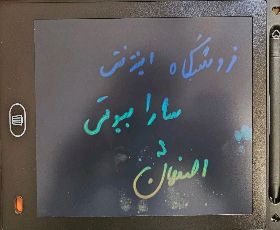 فروشگاه اینترنتی
سارا بیوتی
اصفهان